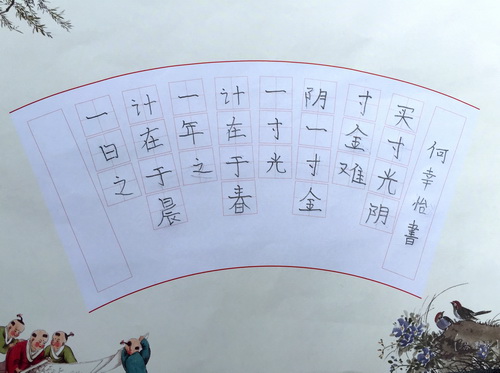 一日之
计在于晨
一年之
计在于春
一寸光
阴一寸金
寸金难
买寸光阴
何幸怡書